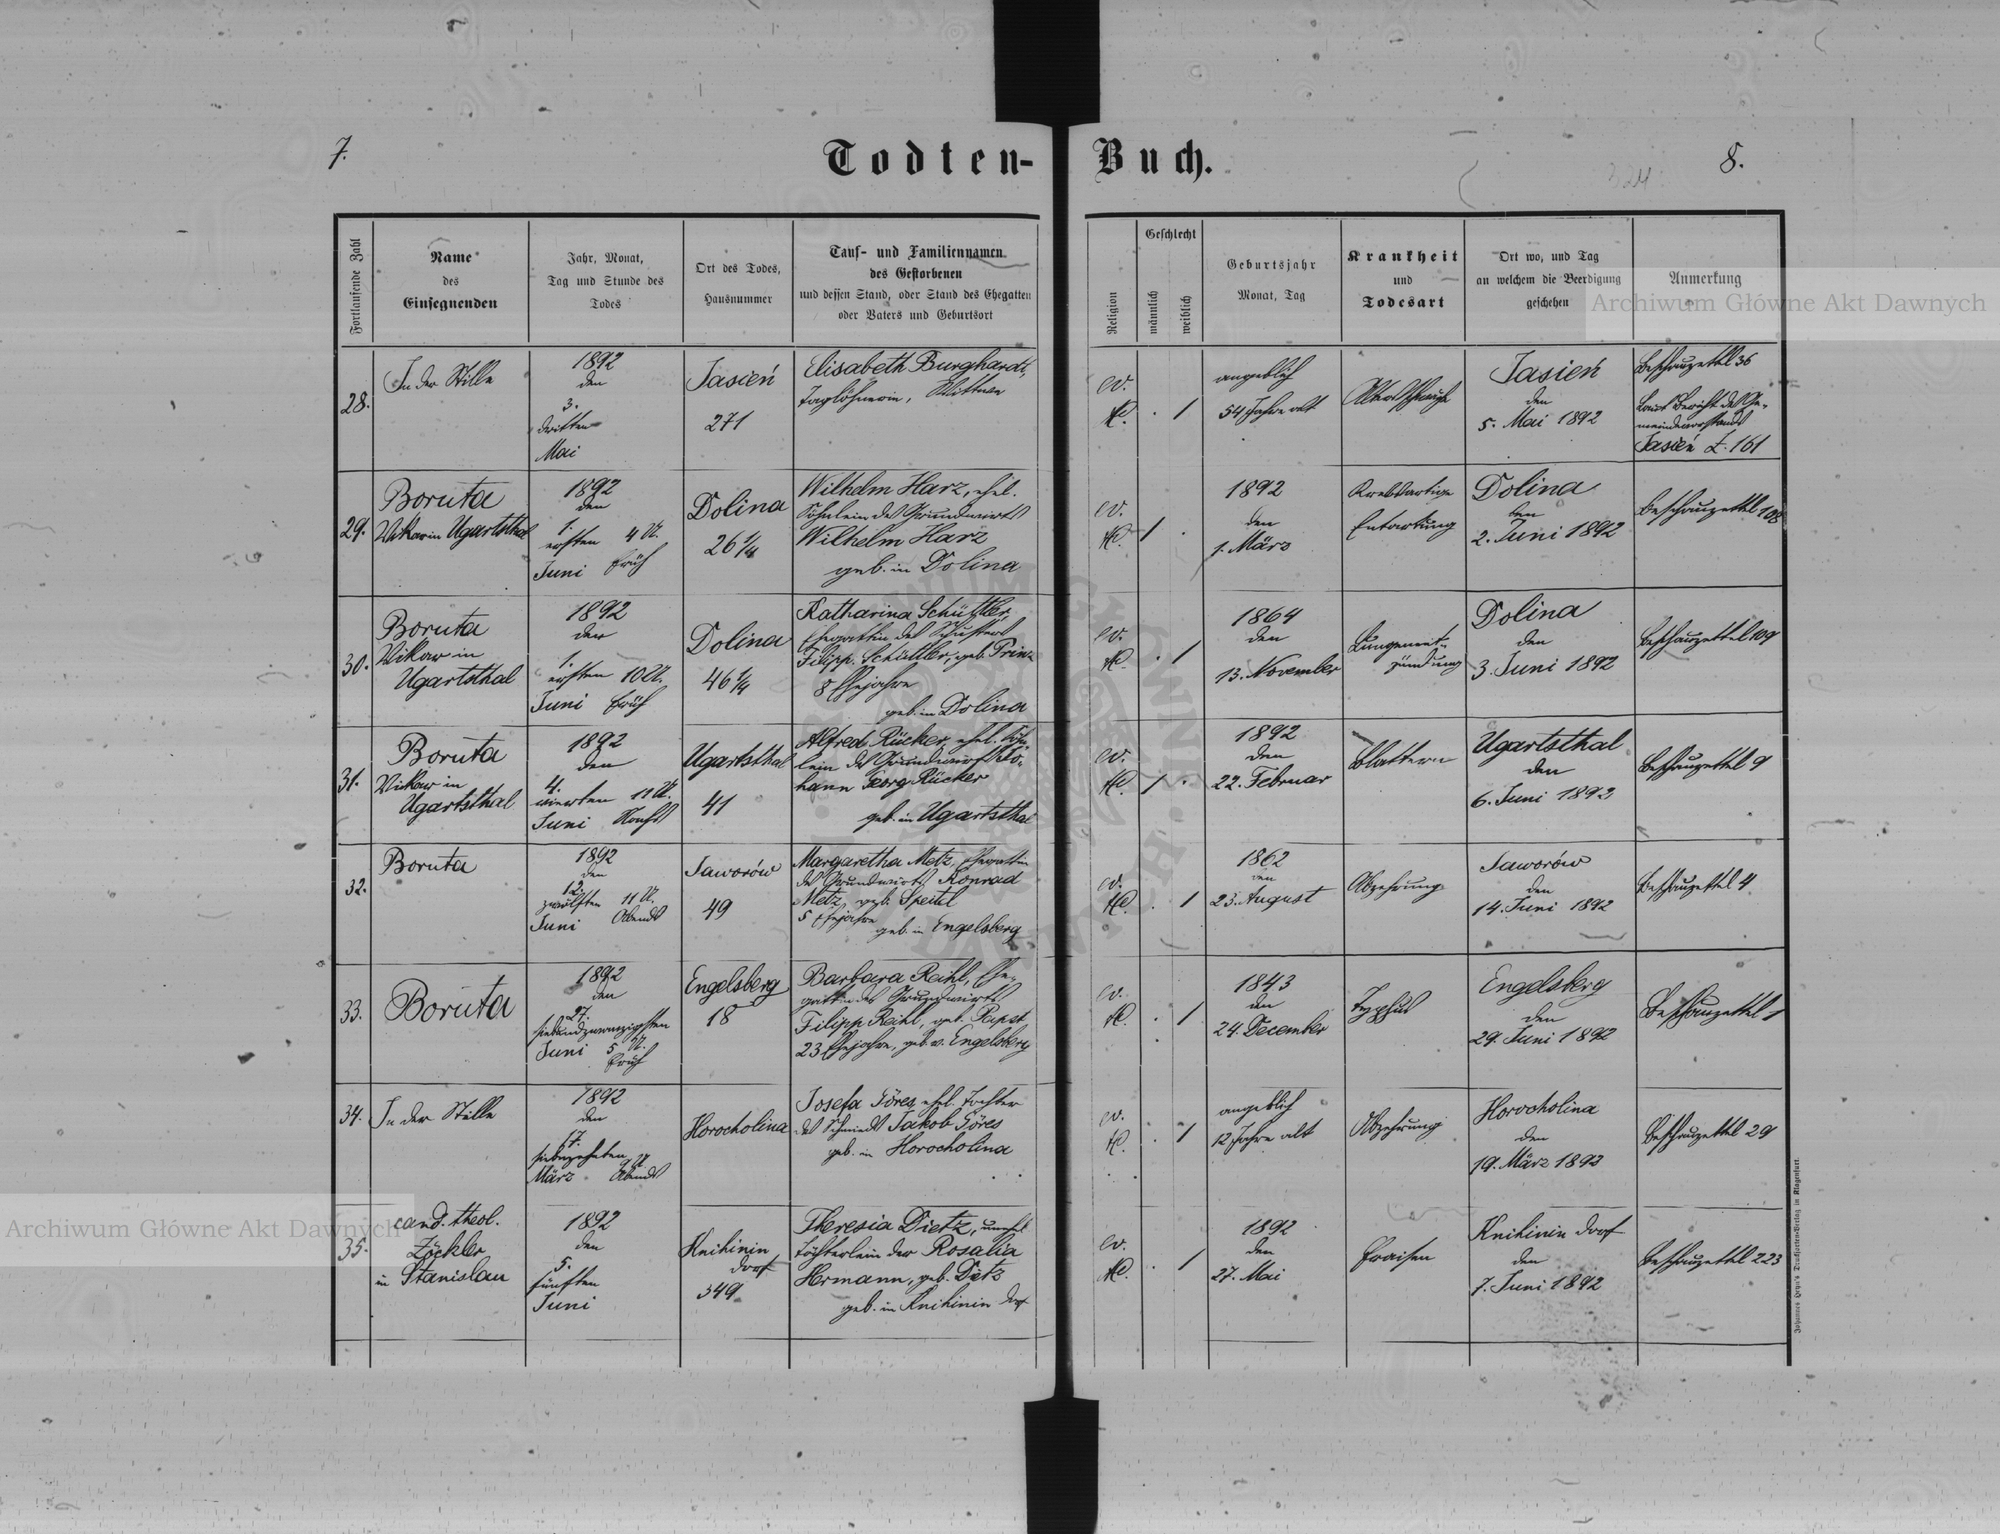 7.
Todten-
Buch.
8.
324
Fortlaufende Zahl
Name
des
Einsegnenden
Jahr, Monat,
Tag und Stunde des
Todes
Ort des Todes,
Hausnummer
Tauf- und Familiennamen
des Gestorbenen
und dessen Stand, oder Stand des Ehegatten
oder Vaters und Geburtsort
Religion
Geschlecht
männlich
weiblich
Geburtsjahr
Monat, Tag
Krankheit
und
Todesart
Ort wo, und Tag
an welchem die Beerdigung
geschehen
Anmerkung
Archiwum Główne Akt Dawnych
28.
In der Stille
1892
den
3.
dritten
Mai
Jasień
271
Elisabeth Burghardt,
Taglöhnerin, Wittwe
ev.
HC.
1
angeblich
54 Jahre alt
Jasień
den
5. Mai 1892
Beschauzettel 36
Laut Bericht des Ge-
meindevorstands
Jasień Z. 161
29.
Boruta
Vikar in Ugartsthal
1892
den
1.
ersten 4 U.
Juni Früh
Dolina
26 1/4
Wilhelm Harz, ehel.
Söhnlein des Grundwirts
Wilhelm Harz
geb. in Dolina
ev.
HC.
1
1892
den
1. März
Krebsartige
Entartung
Dolina
den
2. Juni 1892
Beschauzettel 108
30.
Boruta
Vikar in
Ugartsthal
1892
den
1.
ersten 10 U.
Juni Früh
Dolina
46 1/4
Katharina Schüttler,
Ehegattin des Schusters
Filipp Schüttler, geb. Prinz
8 Ehejahre
geb. in Dolina
ev.
HC.
1
1864
den
13. November
Lungenent-
zündung
Dolina
den
3. Juni 1892
Beschauzettel 109
31.
Boruta
Vikar in
Ugartsthal
1892
den
4.
vierten 11 U.
Juni Nachts
Ugartsthal
41
Alfred Rücker, ehel. Söhn-
lein des Grundwirts Jo-
hann Georg Rücker
geb. in Ugartsthal
ev.
HC.
1
1892
den
22. Februar
Blattern
Ugartsthal
den
6. Juni 1892
Beschauzettel 9
32.
Boruta
1892
den
12.
zwölften 11 U.
Juni Abends
Jaworów
49
Margaretha Metz, Ehegattin
des Grundwirts Konrad
Metz, geb. Speitel
5 Ehejahre
geb. in Engelsberg
ev.
HC.
1
1862
den
23. August
Abzehrung
Jaworów
den
14. Juni 1892
Beschauzettel 4
33.
Boruta
1892
den
27.
siebenundzwanzigsten
Juni 5 U.
Früh
Engelsberg
18
Barbara Reihl, Ehe-
gattin des Grundwirts
Filipp Reihl, geb. Papst
23 Ehejahre, geb. v. Engelsberg
ev.
HC.
1
1843
den
24. December
Typhus
Engelsberg
den
29. Juni 1892
Beschauzettel 1
34.
In der Stille
1892
den
17.
siebzehnten 9 U.
März Abends
Horocholina
Josefa Göres, ehel. Tochter
des Schmieds Jakob Göres
geb. in Horocholina
ev.
HC.
1
angeblich
12 Jahre alt
Abzehrung
Horocholina
den
19. März 1892
Beschauzettel 29
Archiwum Główne Akt Dawnych
35.
cand. theol.
Zöckler
in Stanislau
1892
den
5.
fünften
Juni
Knihinin
Dorf
349
Theresia Dietz, unehel.
Töchterlein der Rosalia
Hermann, geb. Dietz
geb. in Knihinin Dorf
ev.
HC.
1
1892
den
27. Mai
Fraisen
Knihinin Dorf
den
7. Juni 1892
Beschauzettel 223
Johannes Heyn's Drucksorten-Verlag in Klagenfurt.